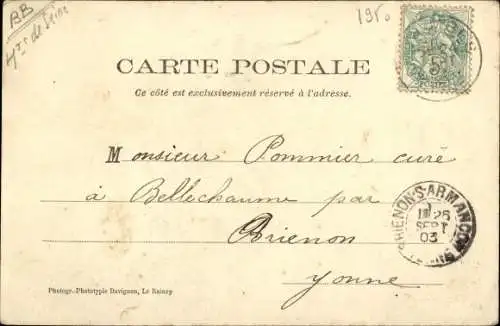 BB
Hts de Seine
195.
CARTE POSTALE
Ce côté est exclusivement réservé à l'adresse.
Monsieur Pommier curé
à Bellechaume par
Brienon
Yonne
BRIENON-S-ARMANÇON
26
SEPT
03
Photogr.-Phototypie Davignon, Le Raincy